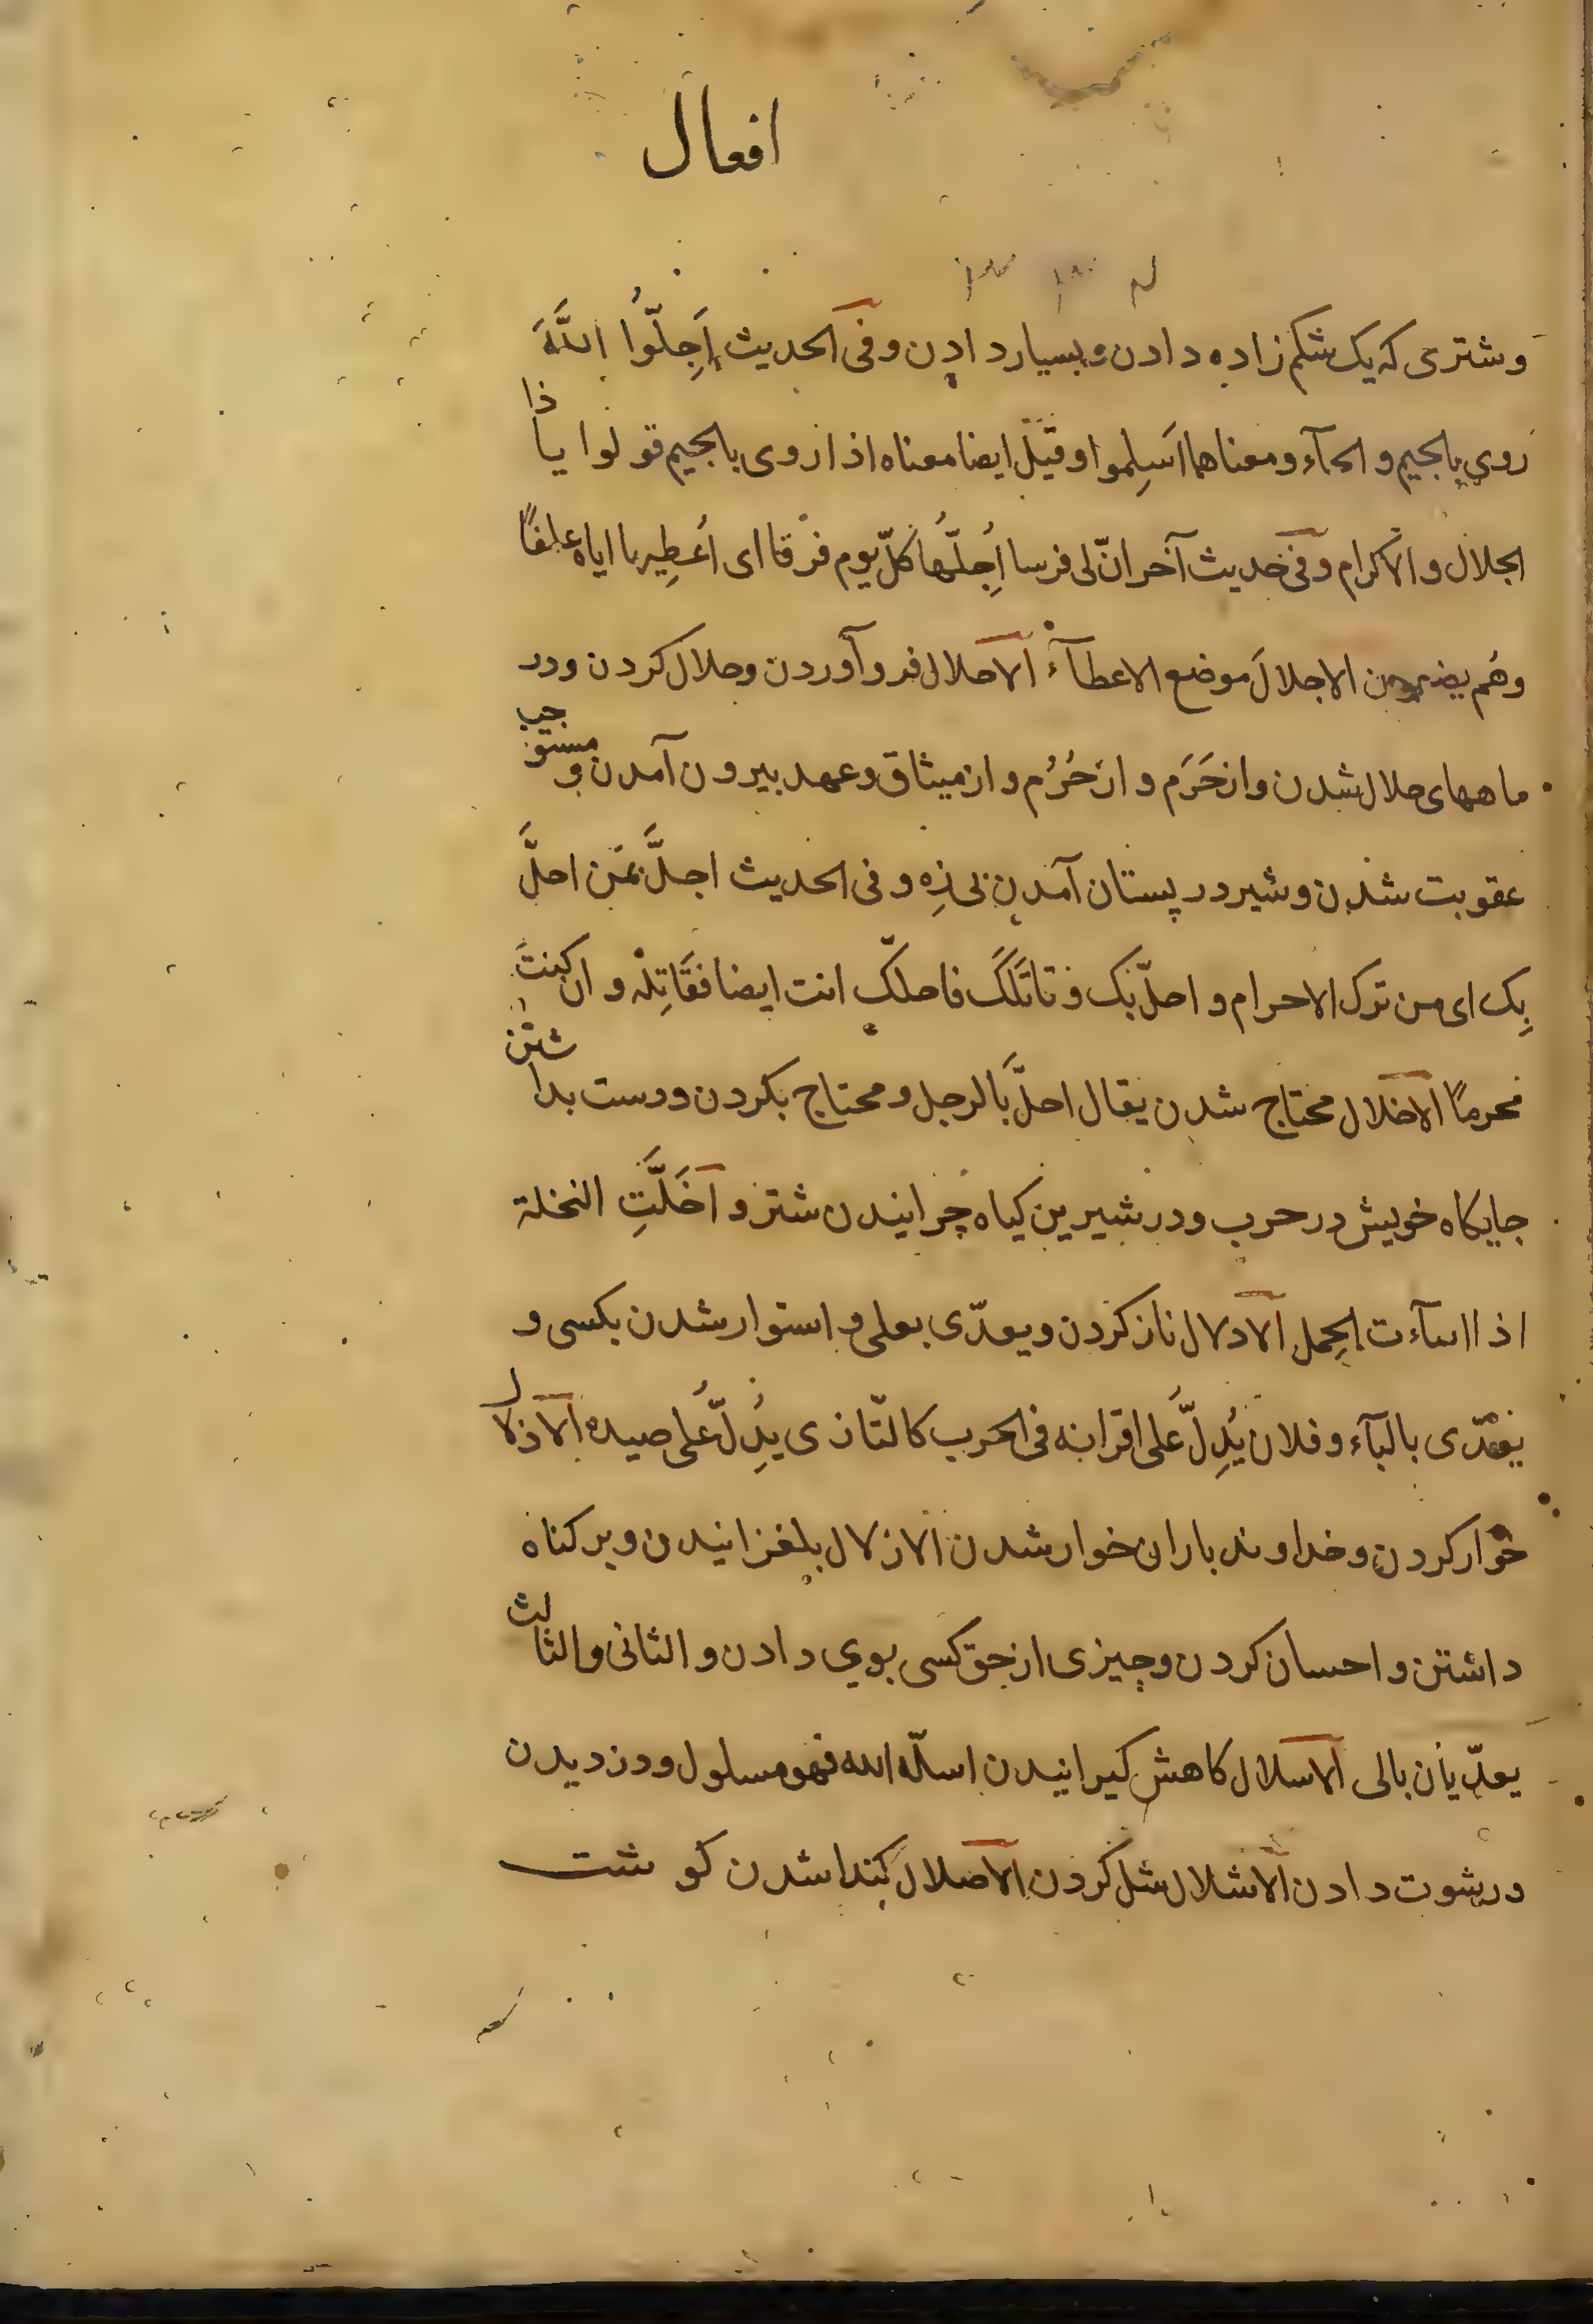 افعال
وشتری که یک شکم زاده دادن و بسیار دادن وفی الحدیث اَجِلُّوا اللّٰهَ
روی بالجیم والحآء ومعناهما اَسلِموا وقیل ایضا معناه اذا روی بالجیم قولوا یا ذا
الجلال والاکرام وفی حدیث آخر انّ لی فرسا اُجِلُّها کلّ یوم فرقا ای اُعطِیها ایاه علفاً
وهُم یضعون الاجلالَ موضع الاعطآء الاحلال فرو آوردن وحلال کردن ودر
ماههای حلال شدن واز حَرَم واز حُرُم واز میثاق وعهد بیرون آمدن و مستوجب
عقوبت شدن وشیر در پستان آمدن بی زِه وفی الحدیث احلَّ بمَن احلَّ
بِک ای من ترک الاحرام واحلّ بک وقاتَلَکَ فاحلل انت ایضا فقَاتِلْه وان کنتَ
محرماً الاخلال محتاج شدن یقال اخلَّ بالرجل ومحتاج بکردن ودست بداشتن
جایکاه خویش در حرب ودر شیرین کیاه چرانیدن شتر و اَخَلَّتِ النخلة
اذا اسآءت الحِمل الادلال ناز کردن ویعدّی بعلی و استوار شدن بکسی و
یعدّی بالبآء وفلان یُدِلُّ علی اقرانه فی الحرب کالبازی یُدِلُّ علی صیده الاذلال
خوار کردن وخداوند یاران خوار شدن الازلال بلغزانیدن وبر کناه
داشتن واحسان کردن وچیزی از حق کسی بوی دادن والثانی والثالث
یعدّیان بالی الاسلال کاهش کیرانیدن اسلّه الله فهو مسلول ودزدیدن
ورشوت دادن الاشلال شل کردن الاصلال کندا شدن کوشت